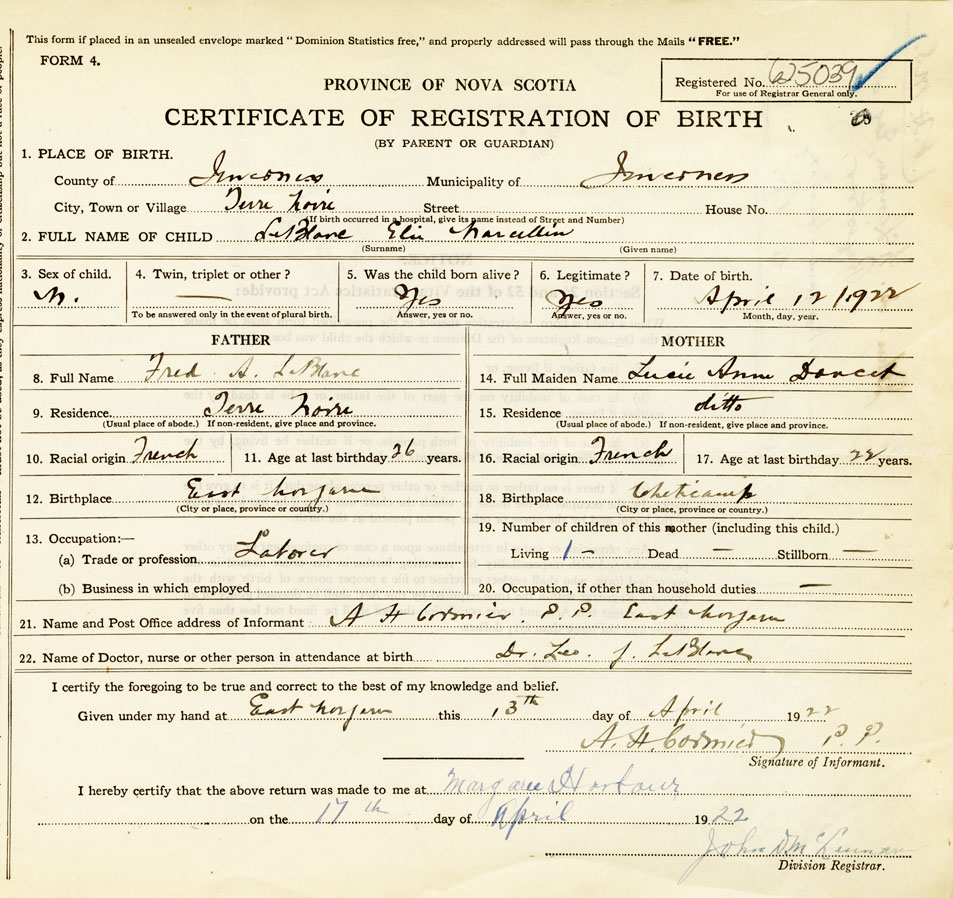 This form if placed in an unsealed envelope marked "Dominion Statistics free," and properly addressed will pass through the Mails "FREE."
FORM 4.
Registered No. 625039
For use of Registrar General only.
PROVINCE OF NOVA SCOTIA
CERTIFICATE OF REGISTRATION OF BIRTH
(BY PARENT OR GUARDIAN)
1. PLACE OF BIRTH.
County of Inverness Municipality of Inverness
City, Town or Village Terre Noire Street House No.
(If birth occurred in a hospital, give its name instead of Street and Number)
2. FULL NAME OF CHILD LeBlanc Elie Marcellin
(Surname) (Given name)
3. Sex of child. 4. Twin, triplet or other? 5. Was the child born alive? 6. Legitimate? 7. Date of birth.
M. — Yes Yes April 12/1922
To be answered only in the event of plural birth. Answer, yes or no. Answer, yes or no. Month, day, year.
FATHER MOTHER
8. Full Name Fred A. LeBlanc 14. Full Maiden Name Lucie Anne Doucet
9. Residence Terre Noire 15. Residence ditto
(Usual place of abode.) If non-resident, give place and province. (Usual place of abode.) If non-resident, give place and province.
10. Racial origin French 11. Age at last birthday 26 years. 16. Racial origin French 17. Age at last birthday 22 years.
12. Birthplace East Margaree 18. Birthplace Cheticamp
(City or place, province or country.) (City or place, province or country.)
13. Occupation:— 19. Number of children of this mother (including this child.)
(a) Trade or profession Laborer Living 1 — Dead — Stillborn —
(b) Business in which employed 20. Occupation, if other than household duties —
21. Name and Post Office address of Informant A H Cormier. P.P. East Margaree
22. Name of Doctor, nurse or other person in attendance at birth Dr. Leo. J. LeBlanc
I certify the foregoing to be true and correct to the best of my knowledge and belief.
Given under my hand at East Margaree this 13th day of April 1922
A. H. Cormier P. P.
Signature of Informant.
I hereby certify that the above return was made to me at Margaree Harbour
on the 17th day of April 1922
John D. McLennan
Division Registrar.